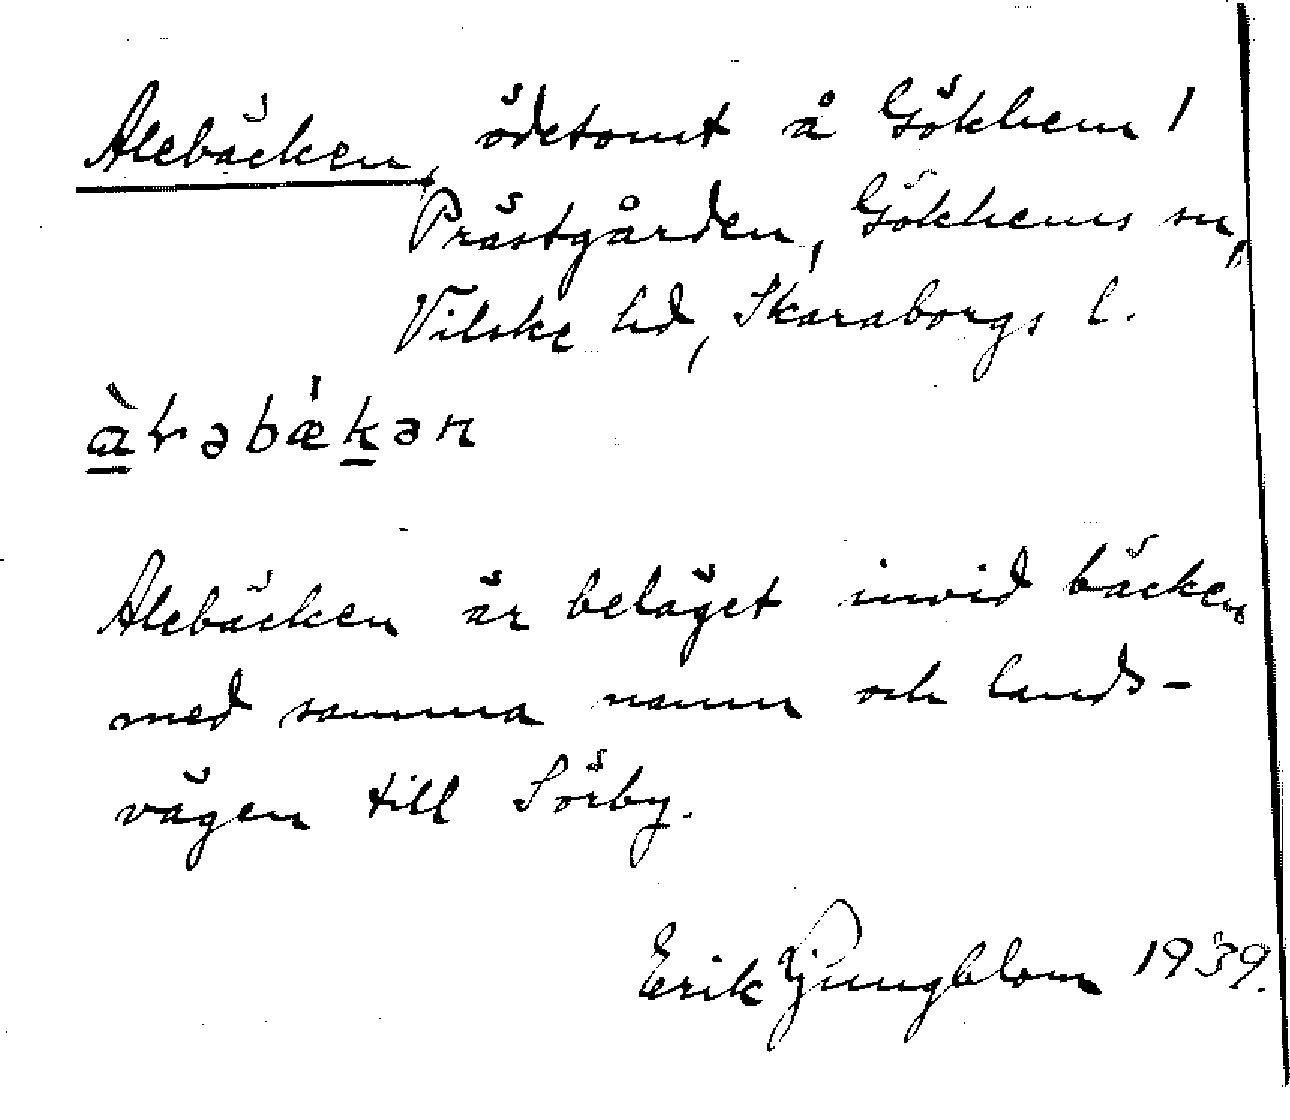 Alebäcken, ödetomt å Gökhem 1
Prästgården, Gökhems sn,
Vilske hd, Skaraborgs l.
àɽəbǽkən
Alebäcken är beläget invid bäcken
med samma namn och lands-
vägen till Sörby.
Erik Ljungblom 1939.